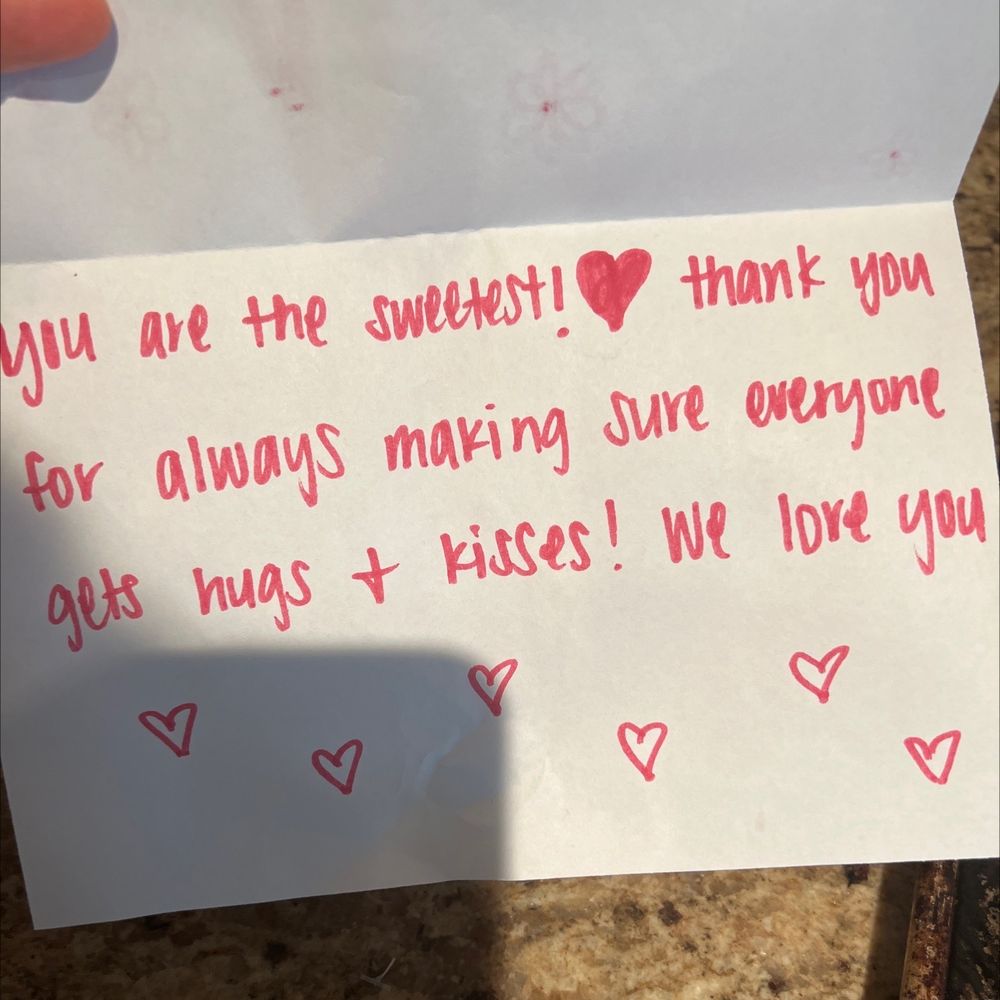 you are the sweetest! ♥ thank you
for always making sure everyone
gets hugs + kisses! We love you